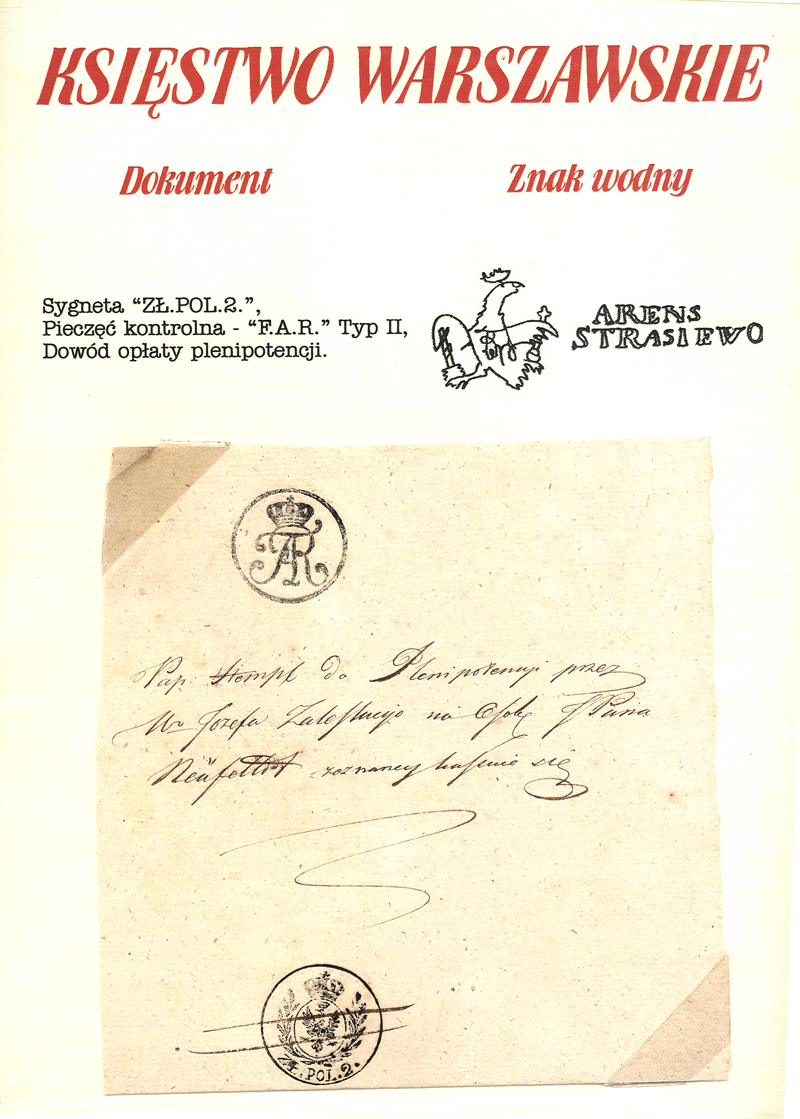 KSIĘSTWO WARSZAWSKIE
Dokument
Znak wodny
Sygneta “ZŁ.POL.2.”,
Pieczęć kontrolna - “F.A.R.” Typ II,
Dowód opłaty plenipotencji.
ARENS
STRASIEWO
FAR
Pap: Stempl do Plenipotencyi przez
Ur Jozefa Zaleskiego na Osobę JPana
zeznaney kassuie się
ZŁ.POL.2.